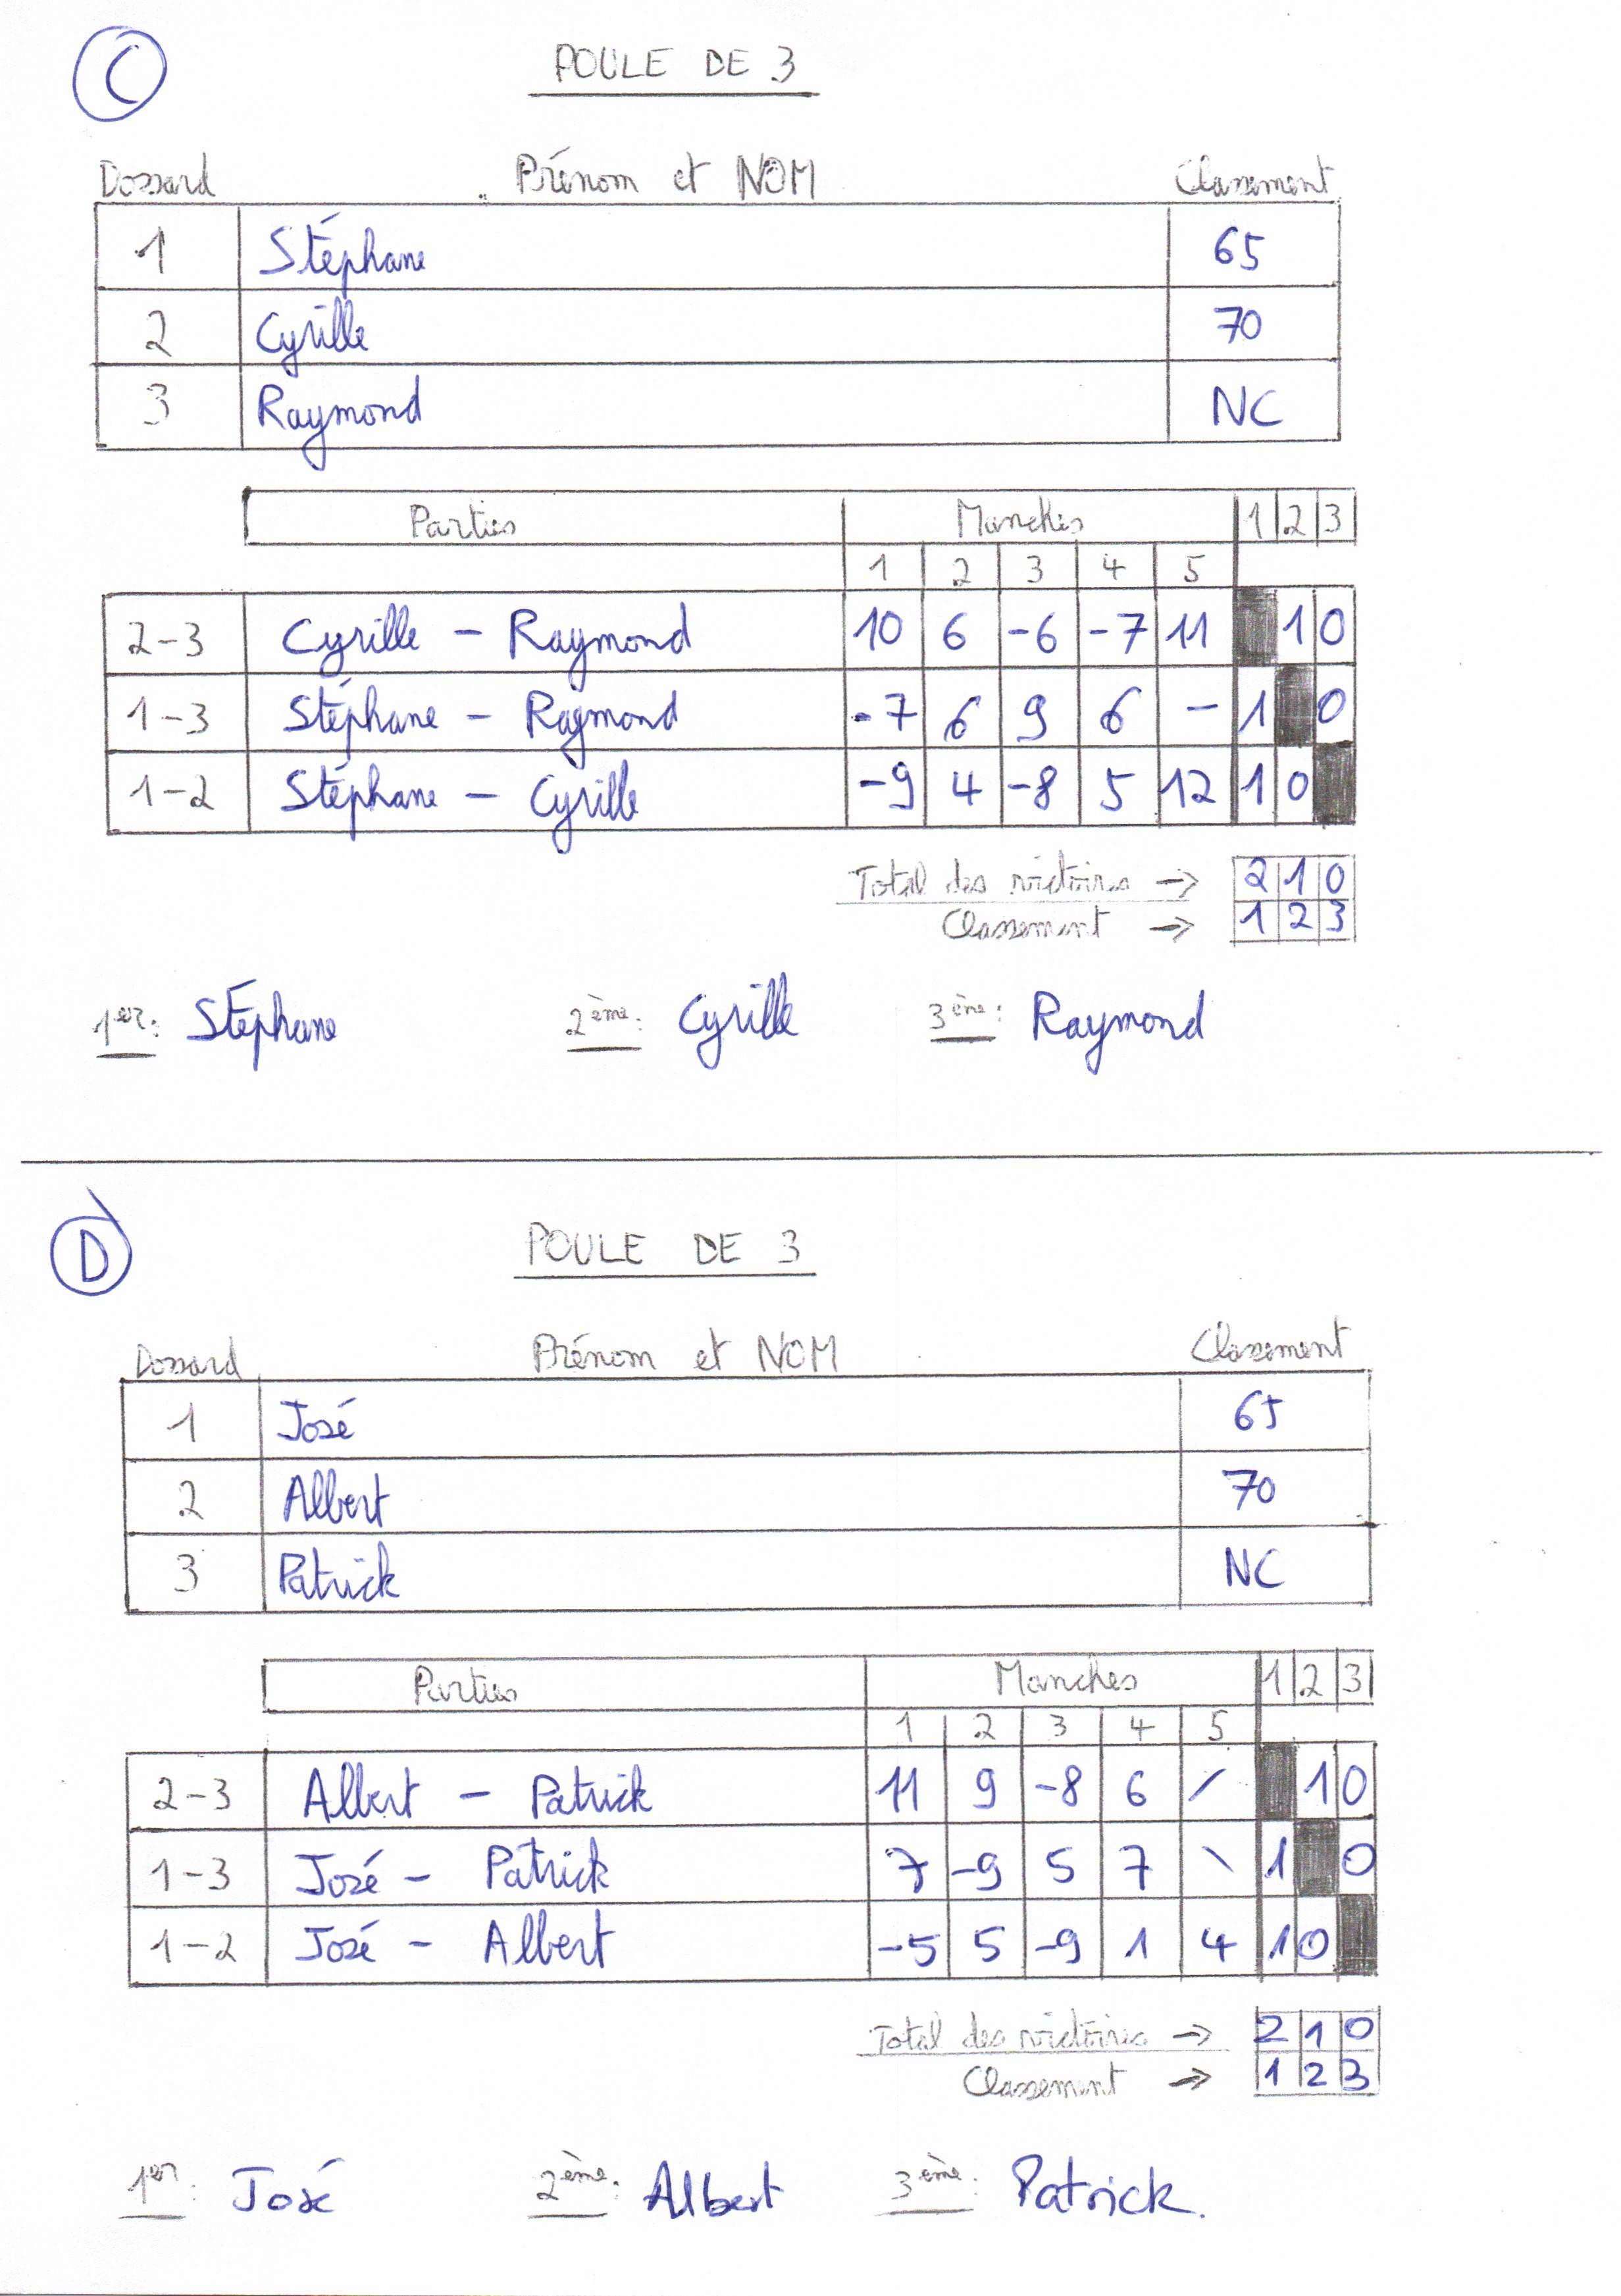 C
POULE DE 3
Dossard Prénom et NOM Classement
1 Stéphane 65
2 Cyrille 70
3 Raymond NC
Parties Manches 1 2 3
1 2 3 4 5
2-3 Cyrille - Raymond 10 6 -6 -7 11 1 0
1-3 Stéphane - Raymond -7 6 9 6 - 1 0
1-2 Stéphane - Cyrille -9 4 -8 5 12 1 0
Total des victoires → 2 1 0
Classement → 1 2 3
1er: Stéphane 2ème: Cyrille 3ème: Raymond
D
POULE DE 3
Dossard Prénom et NOM Classement
1 José 65
2 Albert 70
3 Patrick NC
Parties Manches 1 2 3
1 2 3 4 5
2-3 Albert - Patrick 11 9 -8 6 / 1 0
1-3 José - Patrick 7 -9 5 7 \ 1 0
1-2 José - Albert -5 5 -9 1 4 1 0
Total des victoires → 2 1 0
Classement → 1 2 3
1er: José 2ème: Albert 3ème: Patrick.